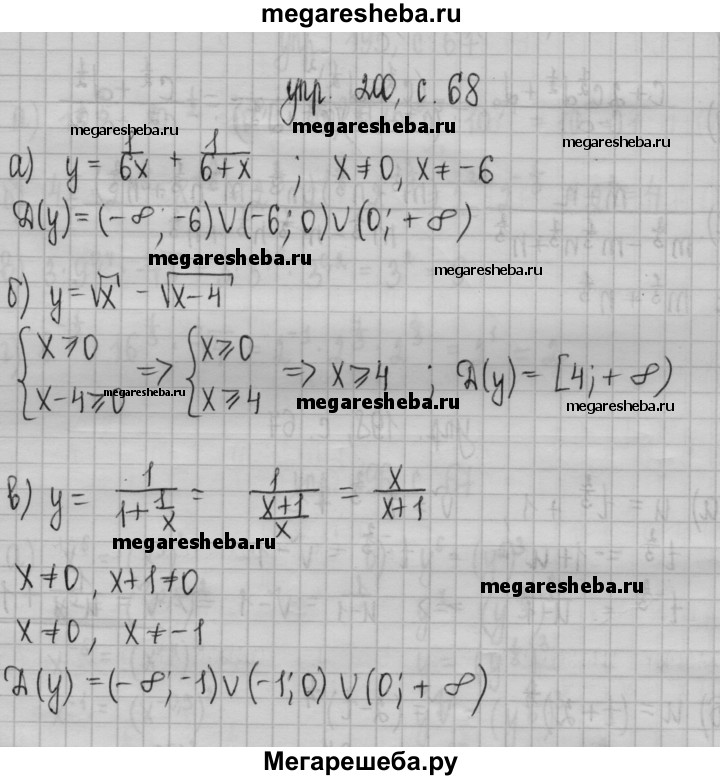 megaresheba.ru
упр. 200, с. 68
megaresheba.ru
megaresheba.ru
megaresheba.ru
а) y = 1/6x + 1/6+x ; x ≠ 0, x ≠ -6
Д(y) = (-∞; -6) ∪ (-6; 0) ∪ (0; +∞)
megaresheba.ru
megaresheba.ru
б) y = √x - √x-4
{x ⩾ 0 => {x ⩾ 0 => x ⩾ 4 ; Д(y) = [4; +∞)
x-4 ⩾ 0 x ⩾ 4
megaresheba.ru
megaresheba.ru
megaresheba.ru
в) y = 1/1+1/x = 1/x+1/x = x/x+1
megaresheba.ru
megaresheba.ru
x ≠ 0, x+1 ≠ 0
x ≠ 0, x ≠ -1
Д(y) = (-∞; -1) ∪ (-1; 0) ∪ (0; +∞)
Мегарешеба.ру